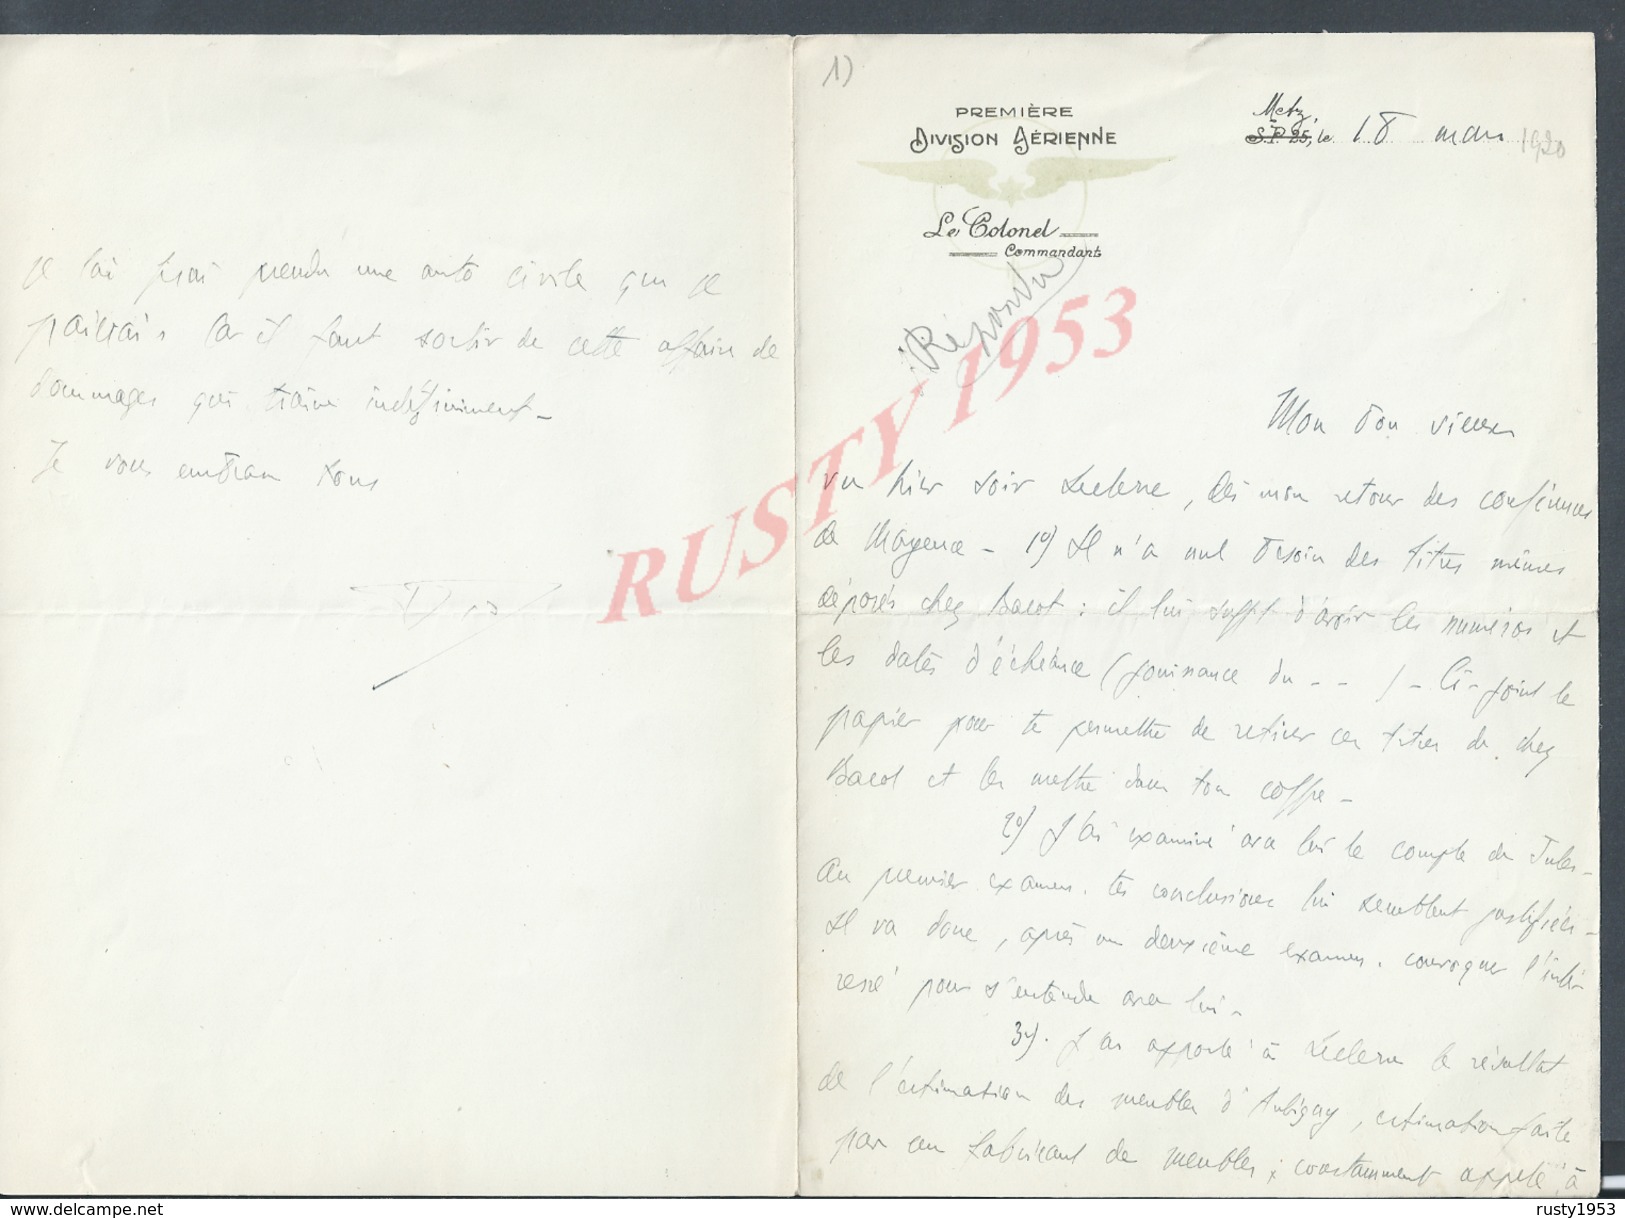 1)
PREMIÈRE
DIVISION AÉRIENNE
Le Colonel
Commandant
Metz,
S.P. 25, le 18 mars 1920
Répondu
Mon bon vieux
vu hier soir Leclerc, dès mon retour des conférences
de Mayence - 1o) Il n'a nul besoin des titres mêmes
déposés chez Bacot : il lui suffit d'avoir les numéros et
les dates d'échéance (jouissance du - - ) - Ci-joint le
papier pour te permettre de retirer ces titres de chez
Bacot et les mettre dans ton coffre -
2o) J'ai examiné avec lui le compte de Jules -
Au premier examen, tes conclusions lui semblent justifiées -
Il va donc, après un deuxième examen, convoquer l'inté-
ressé pour s'entendre avec lui -
3o). J'ai apporté à Leclerc le résultat
de l'estimation des meubles d'Aubigny, estimation faite
par un fabricant de meubles ; constamment appelé à
je lui ferai prendre une auto civile que je
paierais car il faut sortir de cette affaire de
dommages qui traîne indéfiniment -
Je vous embrasse tous
RUSTY 1953
delcampe.net
rusty1953